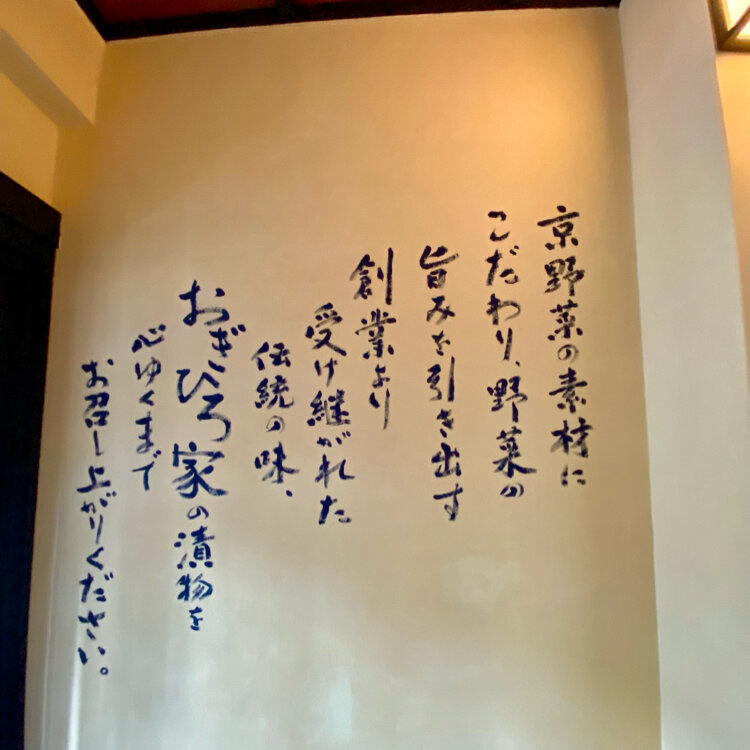 京野菜の素材に
こだわり、野菜の
旨みを引き出す
創業より
受け継がれた
伝統の味、
おぎひろ家の漬物を
心ゆくまで
お召し上がりください。